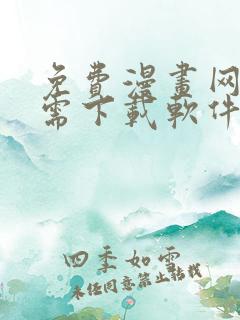 免費漫畫网
需下載軟件
四季如雪
未经同意禁止转载